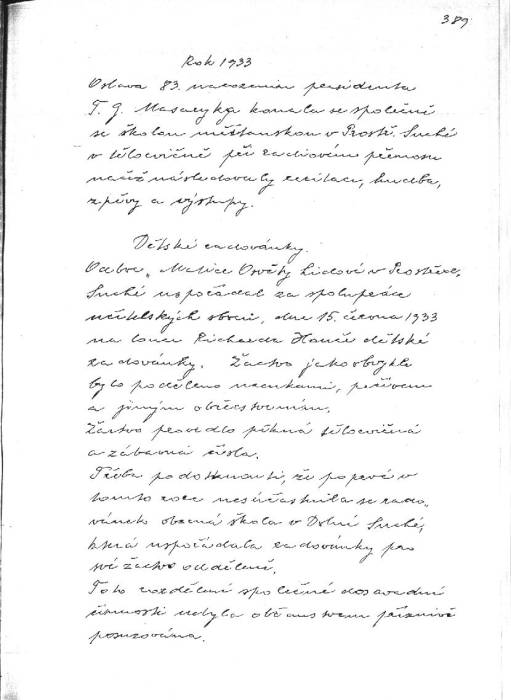 389
Rok 1933
Oslava 83. narozenin presidenta
T. G. Masaryka konala se společně
se školou měšťanskou v Prostř. Suché
v tělocvičně při radiovém přenosu
načež následovaly recitace, hudba,
zpěvy a výstupy.
Dětské radovánky.
Odbor „Matice Osvěty Lidové v Prostřed.
Suché uspořádal za spolupráce
učitelských sborů, dne 15. června 1933
na louce Richarda Hanče dětské
radovánky. Žactvo jako obvykle
bylo poděleno uzenkami, pečivem
a jiným občerstvením.
Žactvo provedlo pěkná tělocvičná
a zábavná čísla.
Třeba podotknouti, že poprvé v
tomto roce nesúčastnila se rado-
vánek obecná škola v Dolní Suché,
která uspořádala radovánky pro
své žactvo odděleně.
Toto rozdělení společné dosavadní
činnosti nebylo občanstvem příznivě
posuzováno.